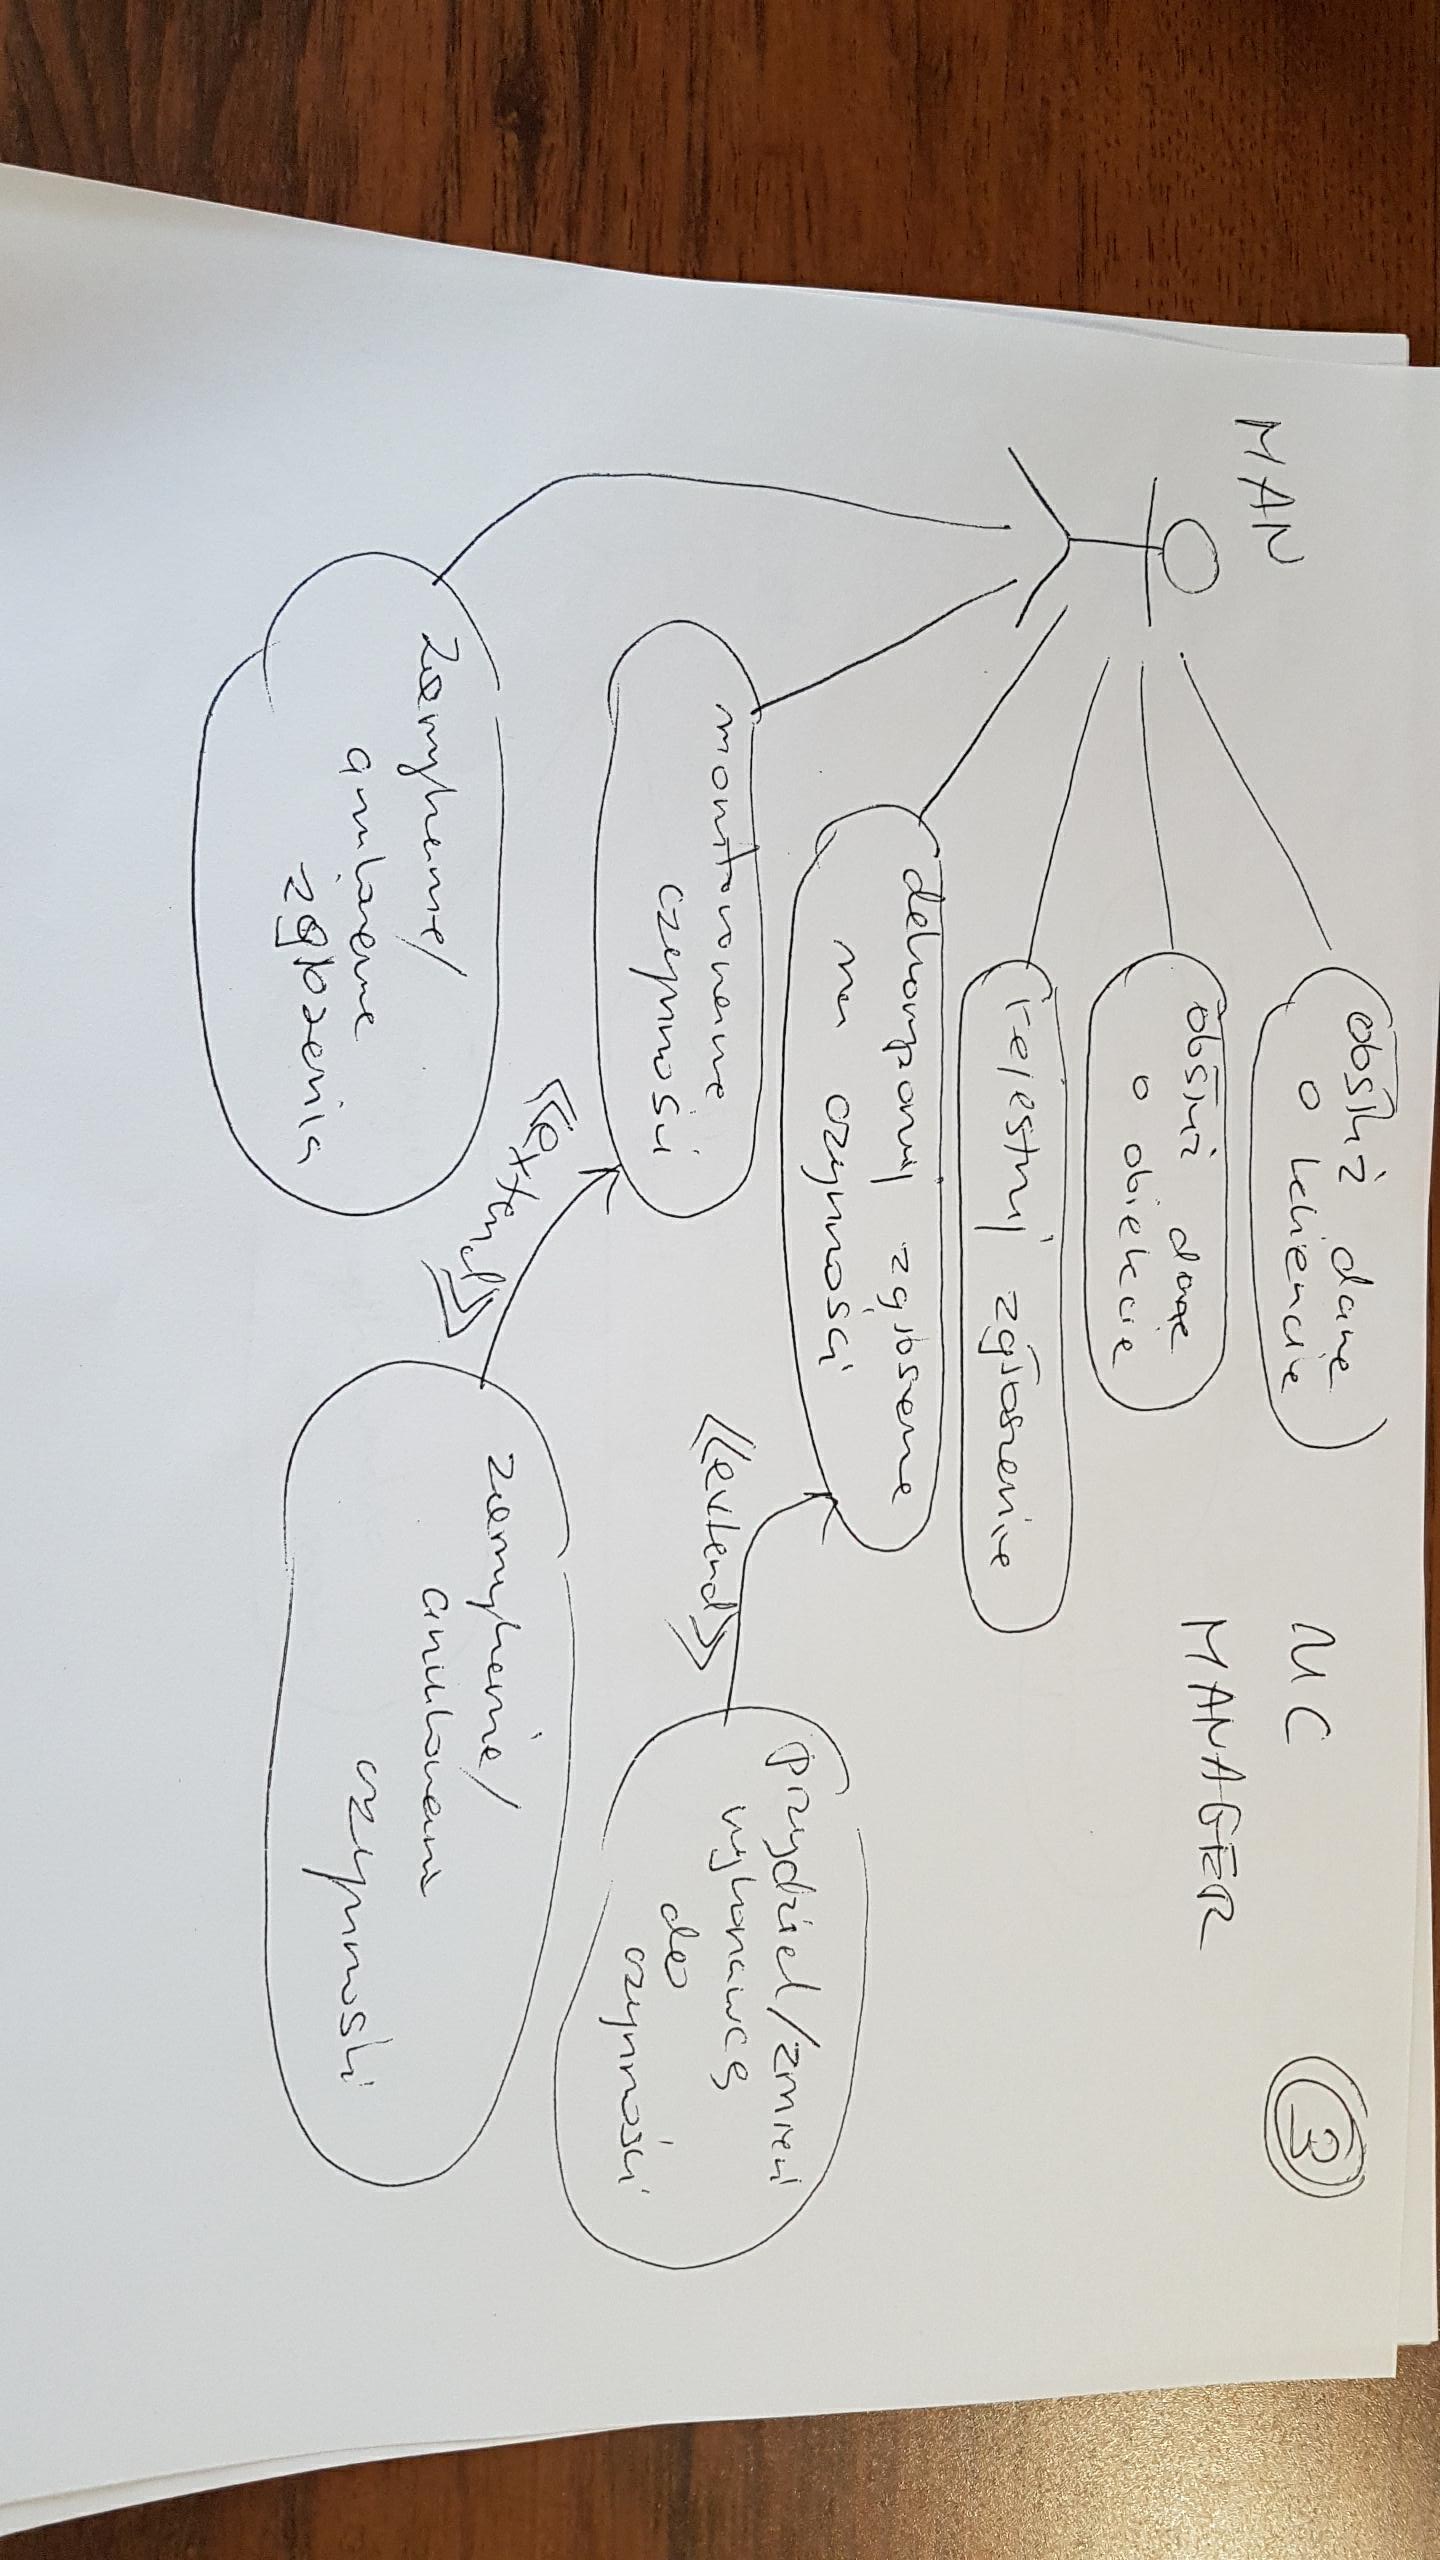 MAN
obsłuż dane
o kliencie
UC
MANAGER
3
obsłuż dane
o obiekcie
rejestruj zgłoszenie
dekomponuj zgłoszenie
na czynności
przydziel/zmień
wykonawcę
do
czynności
<<extend>>
monitorowanie
czynności
<<extend>>
zamykanie/
anulowanie
czynności
Zamykanie/
anulowanie
zgłoszenia